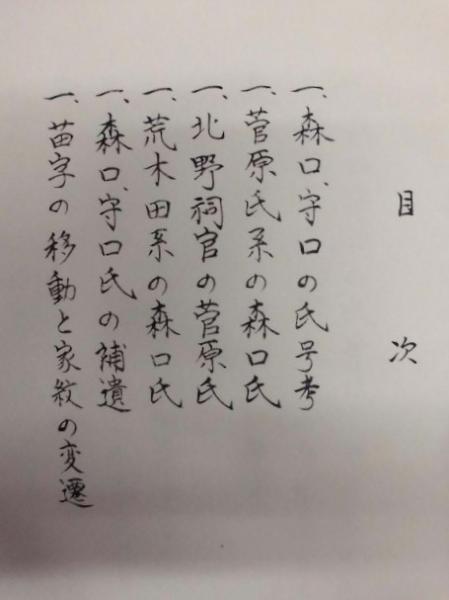 目次
一、森口、守口の氏号考
一、菅原氏系の森口氏
一、北野祠官の菅原氏
一、荒木田系の森口氏
一、森口、守口氏の補遺
一、苗字の移動と家紋の変遷